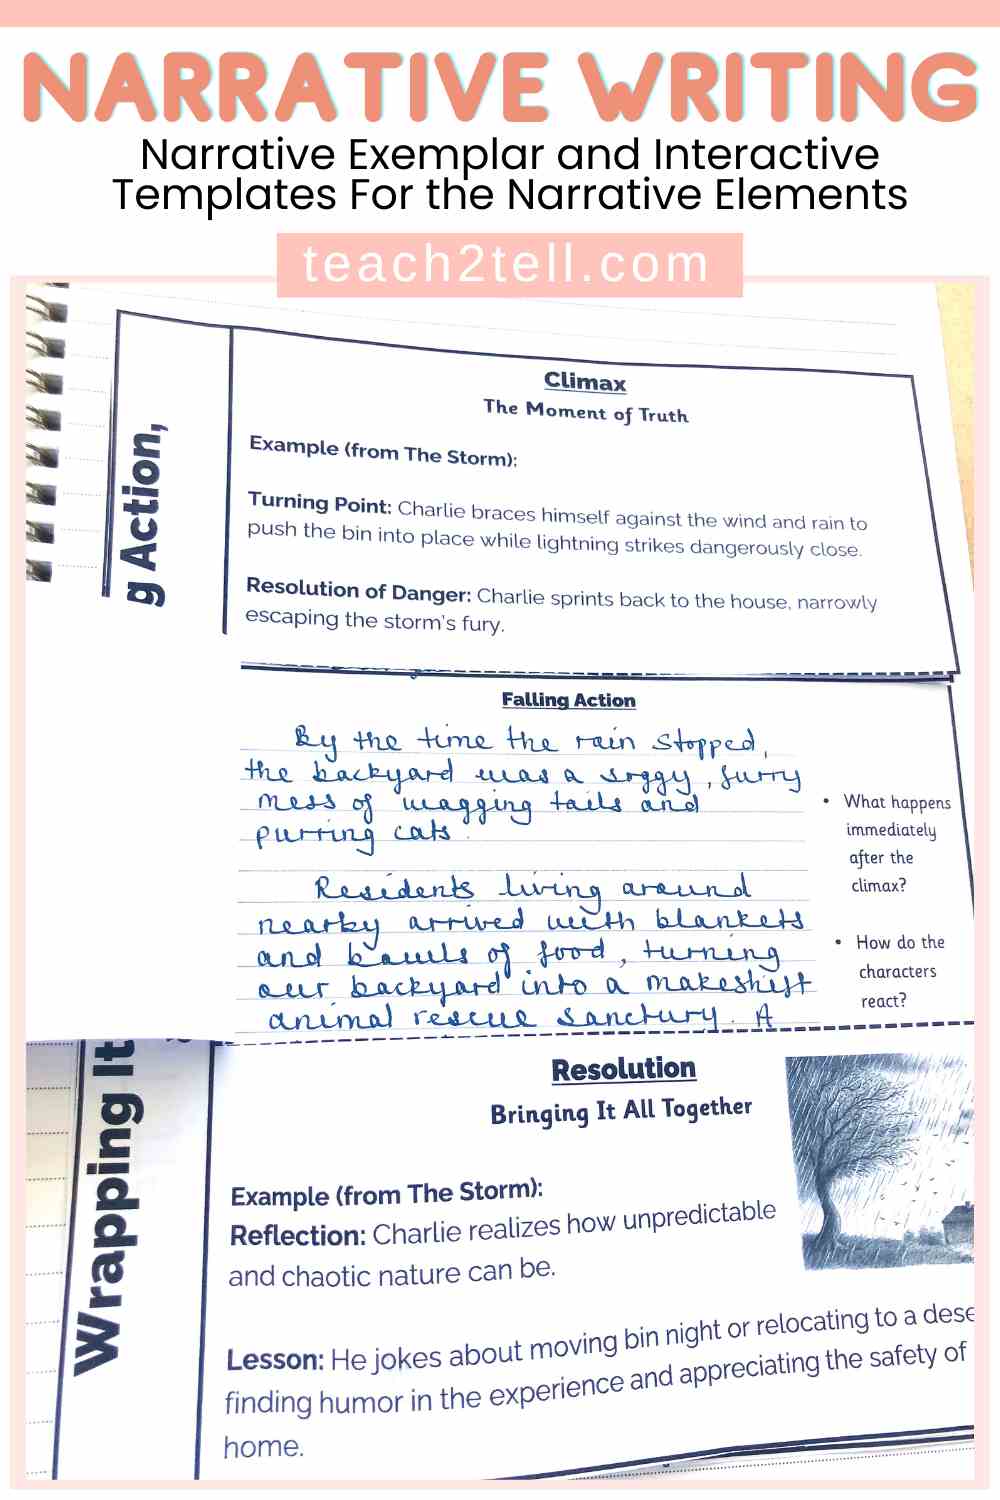 NARRATIVE WRITING
Narrative Exemplar and Interactive
Templates For the Narrative Elements
teach2tell.com
g Action,
Climax
The Moment of Truth
Example (from The Storm):
Turning Point: Charlie braces himself against the wind and rain to
push the bin into place while lightning strikes dangerously close.
Resolution of Danger: Charlie sprints back to the house, narrowly
escaping the storm's fury.
Falling Action
By the time the rain stopped,
the backyard was a soggy, furry
mess of wagging tails and
purring cats.
Residents living around
nearby arrived with blankets
and bowls of food, turning
our backyard into a makeshift
animal rescue sanctury. A
• What happens
immediately
after the
climax?
• How do the
characters
react?
Wrapping It
Resolution
Bringing It All Together
Example (from The Storm):
Reflection: Charlie realizes how unpredictable
and chaotic nature can be.
Lesson: He jokes about moving bin night or relocating to a dese
finding humor in the experience and appreciating the safety of
home.